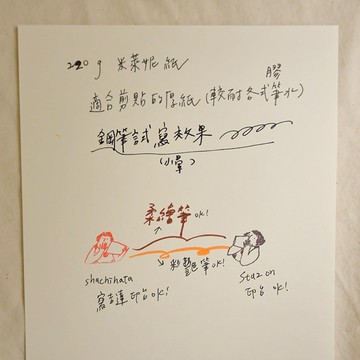 220g 米萊妮紙
適合剪貼的厚紙(較耐各式筆水)
膠
鋼筆試寫效果
(小暈)
柔繪筆ok!
彩艷筆ok!
shachihata
寫吉達印台ok!
Stazon
印台ok!